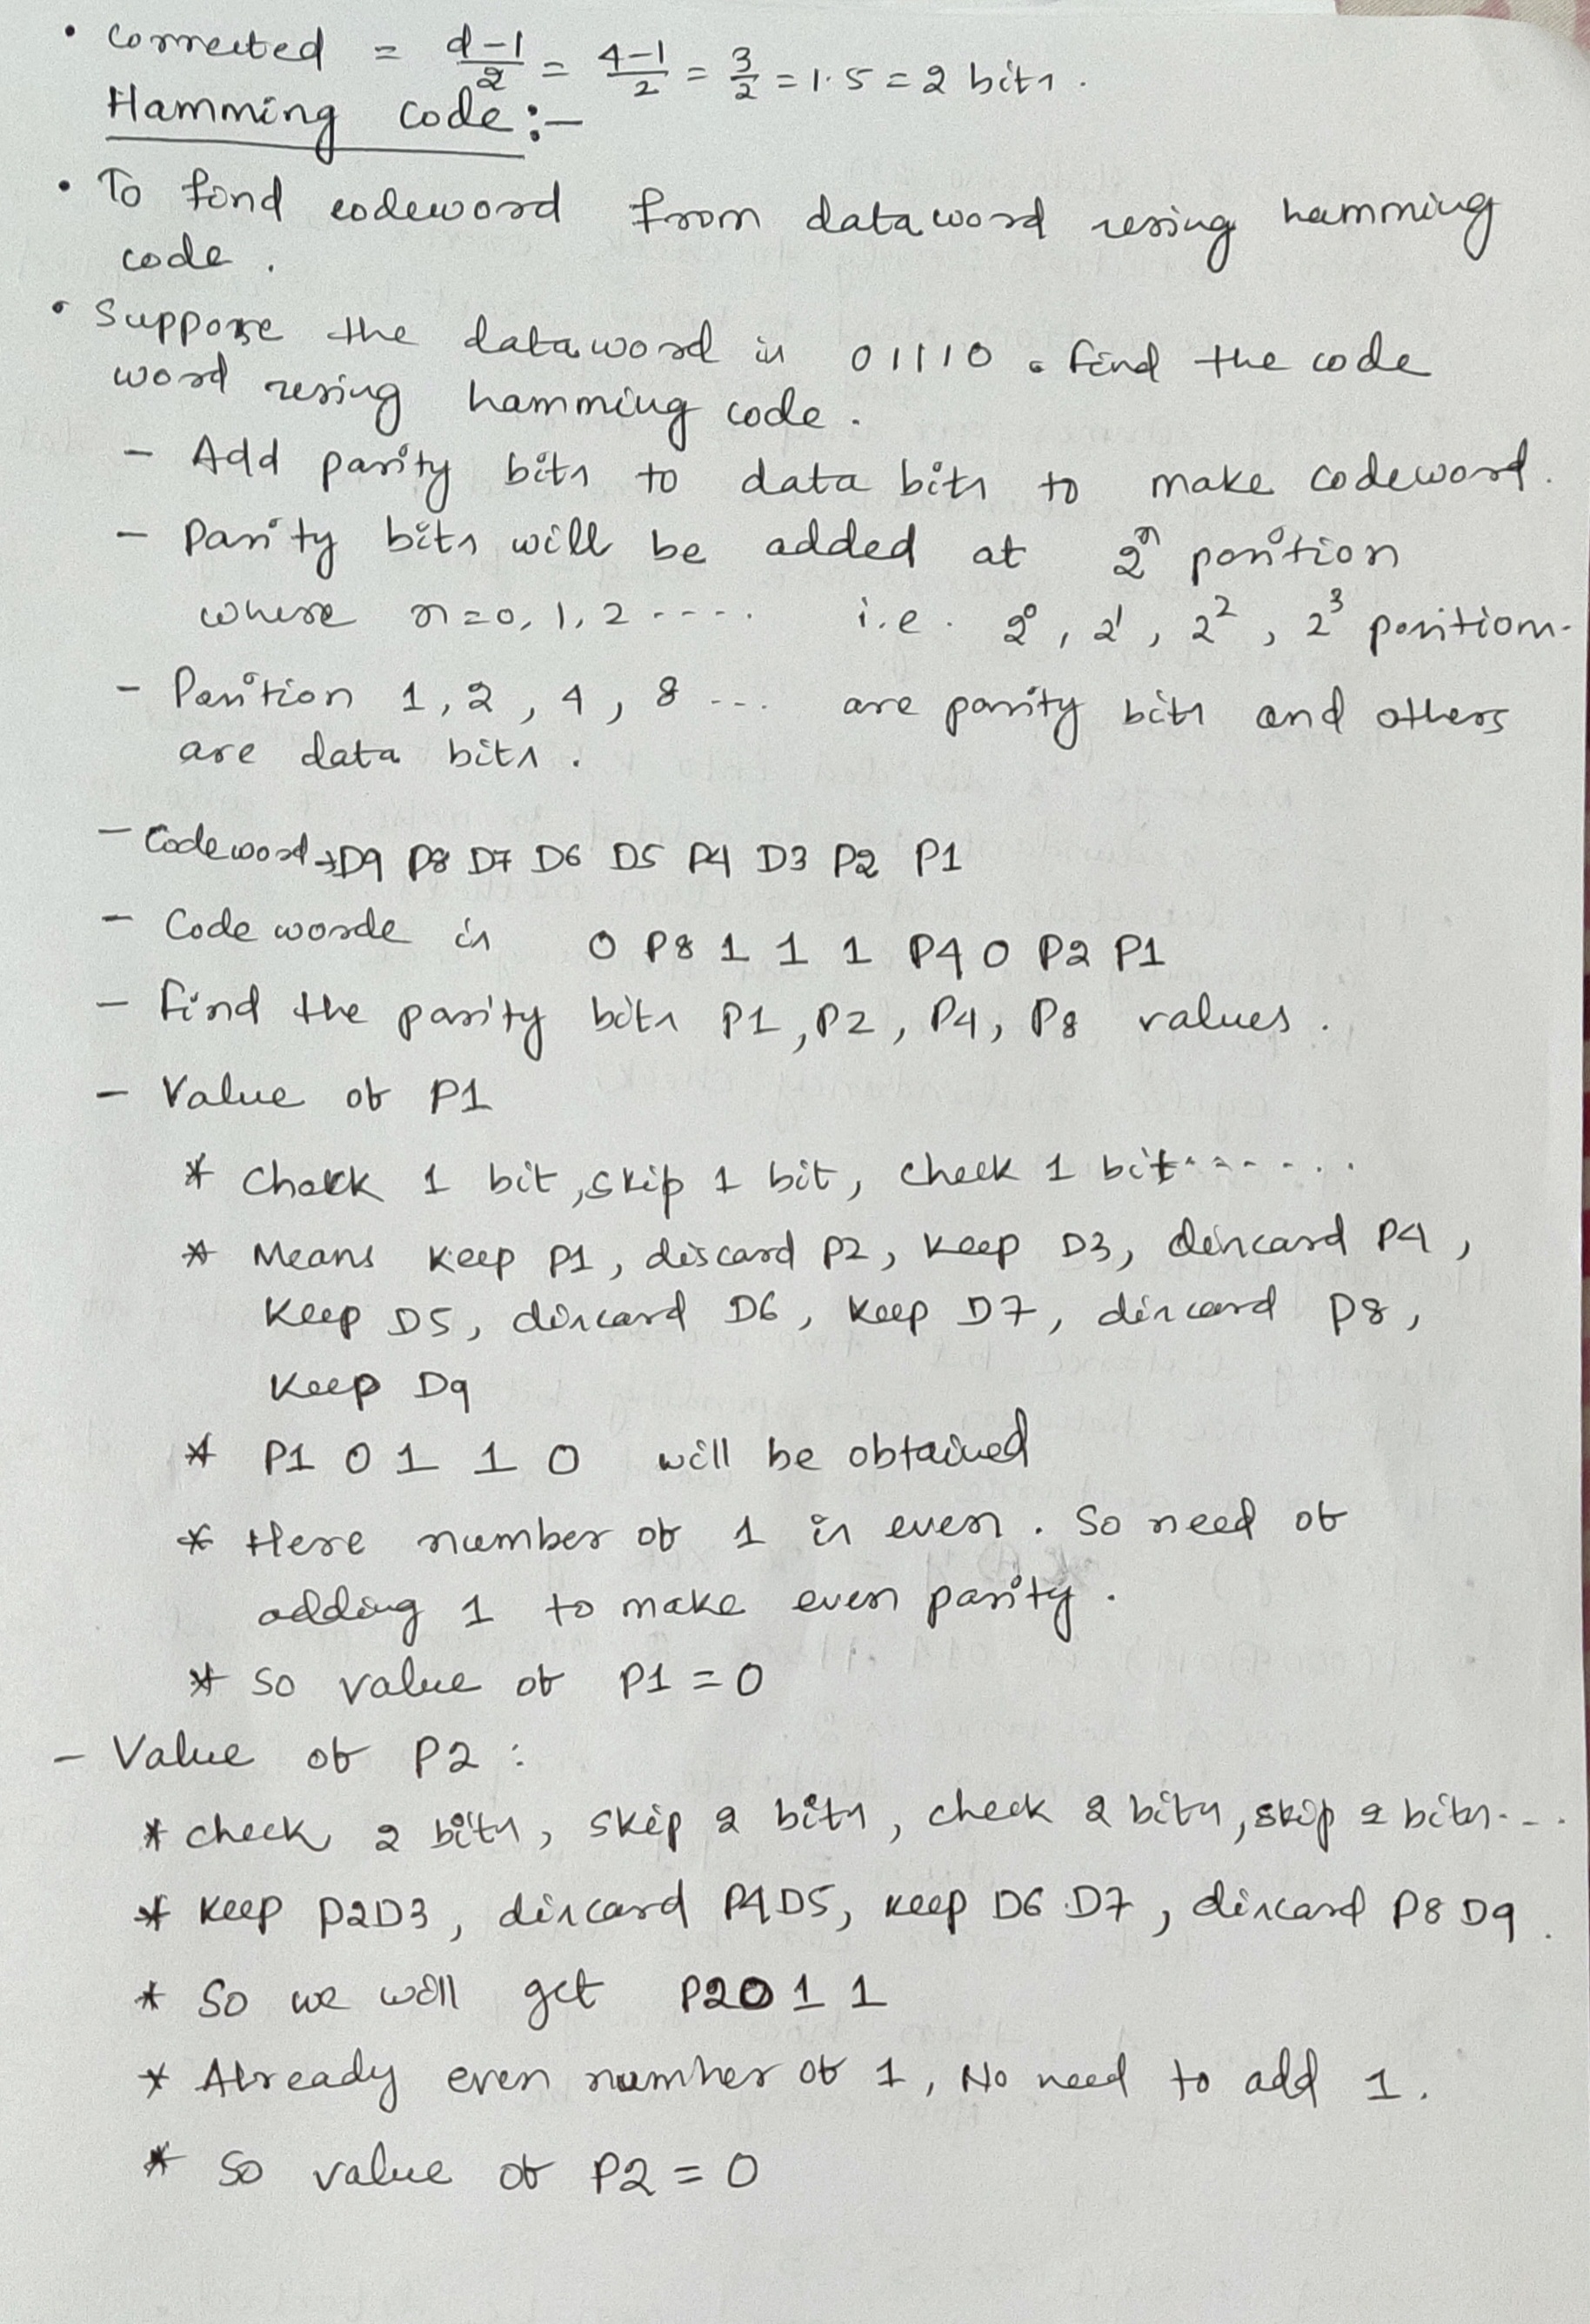 • Corrected = d-1/2 = 4-1/2 = 3/2 = 1.5 = 2 bits.
Hamming code:-
• To find codeword from dataword using hamming
code.
• Suppose the dataword is 01110. Find the code
word using hamming code.
- Add parity bits to data bits to make codeword.
- Parity bits will be added at 2^n position
where n=0, 1, 2 ---- i.e. 2^0, 2^1, 2^2, 2^3 position.
- Position 1, 2, 4, 8 --- are parity bits and others
are data bits.
- Codeword → D9 P8 D7 D6 D5 P4 D3 P2 P1
- Code worde is 0 P8 1 1 1 P4 0 P2 P1
- Find the parity bits P1, P2, P4, P8 values.
- Value of P1
* Check 1 bit, skip 1 bit, check 1 bit-------
* Means keep P1, discard P2, keep D3, discard P4,
Keep D5, discard D6, keep D7, discard P8,
Keep D9
* P1 0 1 1 0 will be obtained
* Here number of 1 is even. So need of
adding 1 to make even parity.
* So value of P1 = 0
- Value of P2 :
* check 2 bits, skip 2 bits, check 2 bits, skip 2 bits---
* Keep P2D3, discard P4D5, keep D6 D7, discard P8 D9.
* So we will get P2 0 1 1
* Already even number of 1, No need to add 1.
* So value of P2 = 0